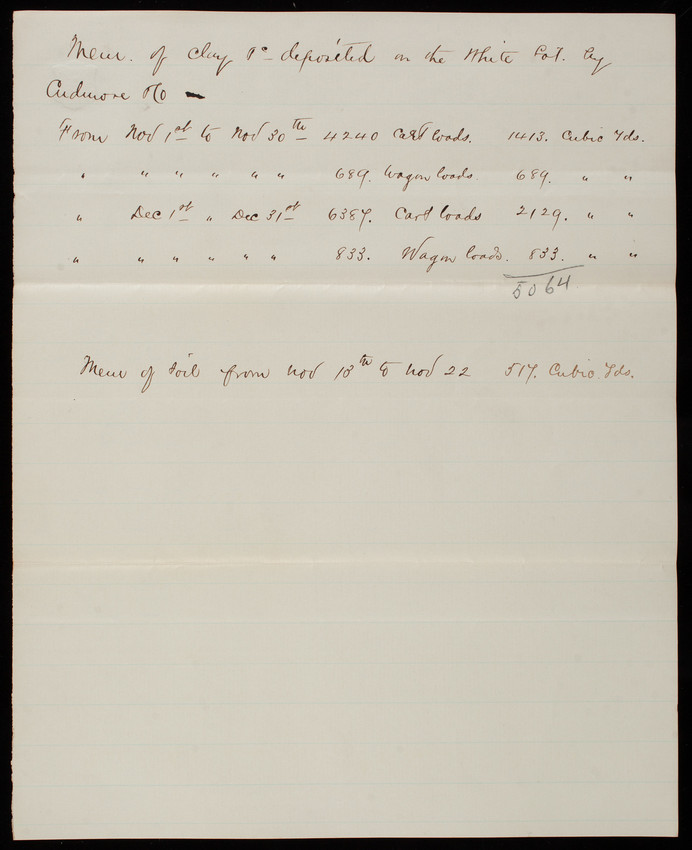 Mem. of clay &c deposited on the White Lot. by
Cudmore &Co —
From Nov 1st to Nov 30th 4240 Cart loads. 1413. Cubic Yds.
" " " " " " 689. Wagon loads 689. " "
" Dec 1st " Dec 31st 6387. Cart loads 2129. " "
" " " " " " 833. Wagon loads. 833. " "
5064
Mem of Soil from Nov 18th to Nov 22 517. Cubic Yds.